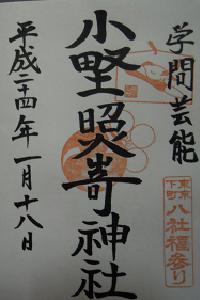 学問芸能
小野照崎神社
平成二十四年一月十八日
東京下町
八社福参り